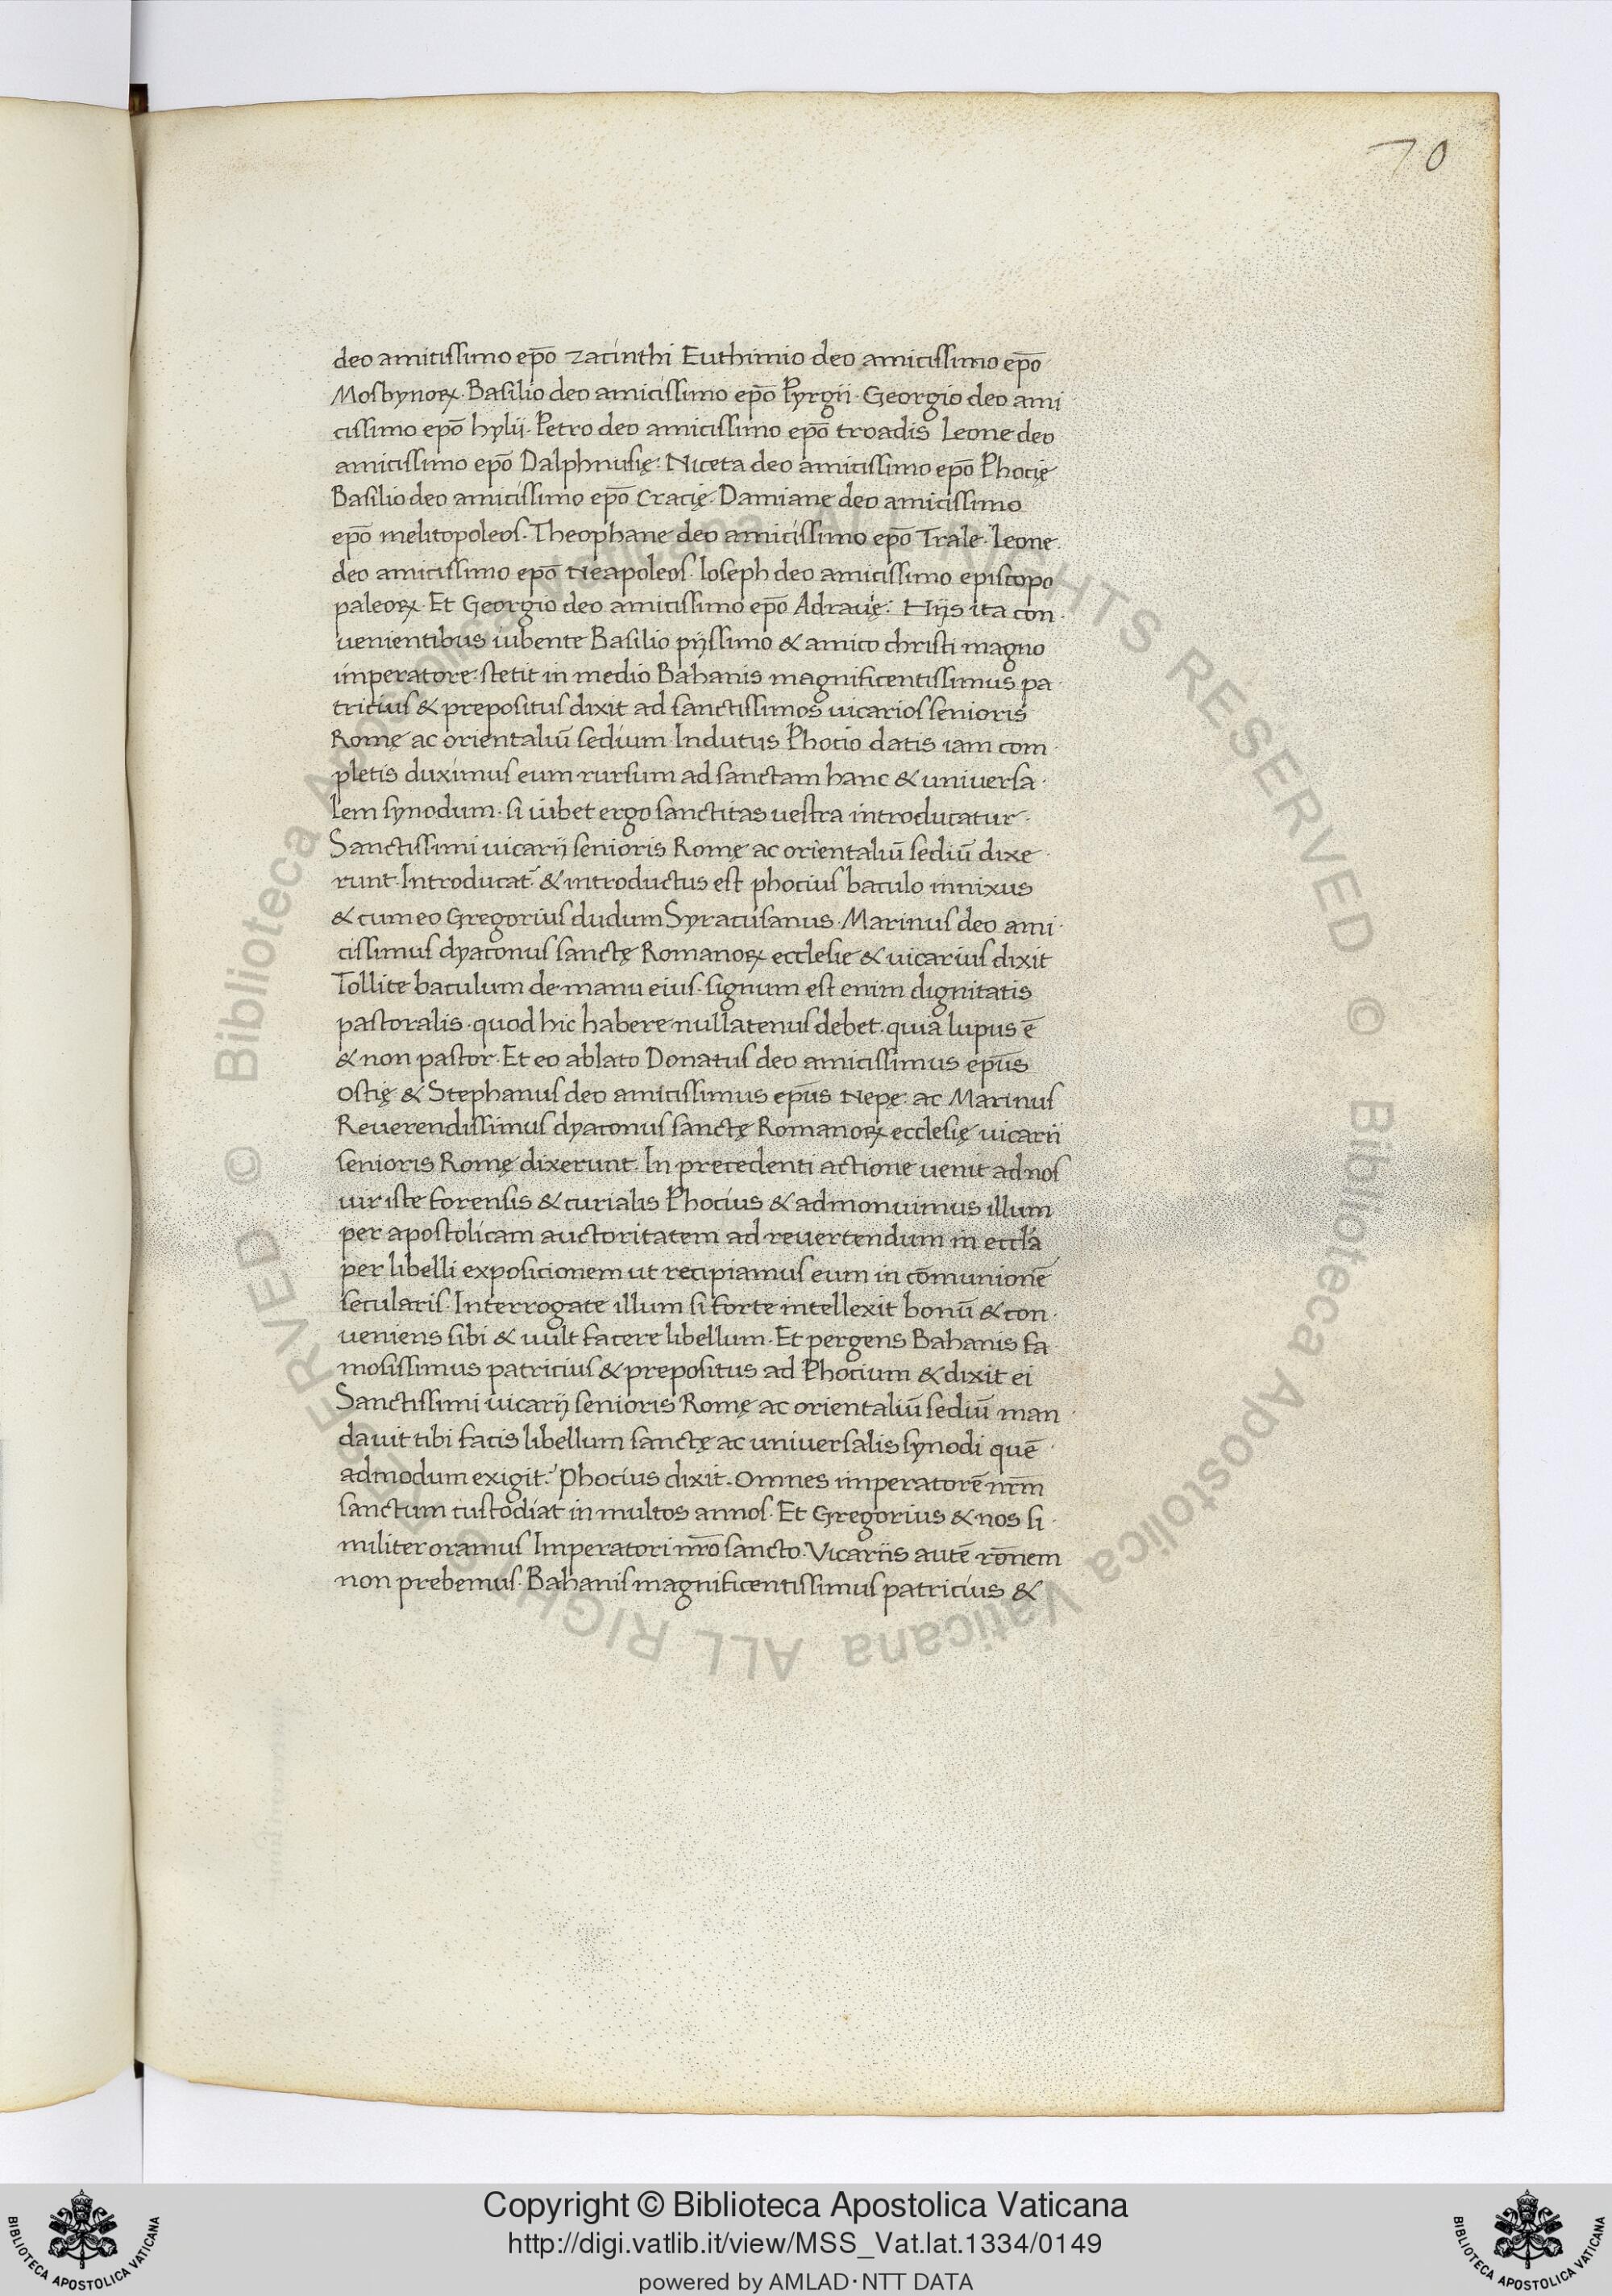 70
deo amicissimo ep̄o zacinthi Euthimio deo amicissimo ep̄o
Mosbynoꝝ. Basilio deo amicissimo ep̄o Pyrgii. Georgio deo ami
cissimo ep̄o hylii. Petro deo amicissimo ep̄o troadis Leone deo
amicissimo ep̄o Dalphnusię: Niceta deo amicissimo ep̄o Phocię
Basilio deo amicissimo ep̄o Cracię. Damiane deo amicissimo
ep̄o melitopoleos. Theophane deo amicissimo ep̄o Trale. Leone
deo amicissimo ep̄o Neapoleos. Ioseph deo amicissimo episcopo
paleoꝝ. Et Georgio deo amicissimo ep̄o Adravię: Hijs ita con
uenientibus iubente Basilio pijssimo & amico christi magno
imperatore. stetit in medio Bahanis magnificentissimus pa
tricius & prepositus dixit ad sanctissimos uicarios senioris
Romę ac orientaliū sedium. Indutus Phocio datis iam com
pletis duximus eum rursum ad sanctam hanc & universa
lem synodum. si iubet ergo sanctitas uestra introducatur.
Sanctissimi uicarij senioris Romę ac orientaliū sediū dixe
runt. Introducat̄ & introductus est phocius baculo innixus
& cum eo Gregorius dudum Syracusanus. Marinus deo ami
cissimus dyaconus sanctę Romanoꝝ ecclesie & uicarius dixit
Tollite baculum de manu eius. signum est enim dignitatis
pastoralis. quod hic habere nullatenus debet. quia lupus ē
& non pastor. Et eo ablato Donatus deo amicissimus ep̄us
ostię & Stephanus deo amicissimus ep̄us Nepę: ac Marinus
Reuerendissimus dyaconus sanctę Romanoꝝ ecclesię uicarii
senioris Romę dixerunt. In precedenti actione uenit ad nos
uir iste forensis & curialis Phocius & admonuimus illum
per apostolicam auctoritatem ad reuertendum in eccl̄a
per libelli exposicionem ut recipiamus eum in cōmunionē
secularis. Interrogate illum si forte intellexit bonū & con
ueniens sibi & uult facere libellum. Et pergens Bahanis fa
mosissimus patricius & prepositus ad Phocium & dixit ei
Sanctissimi uicarij senioris Romę ac orientaliū sediū man
dauit tibi facis libellum sanctę ac universalis synodi quē
admodum exigit. Phocius dixit. Omnes imperatorē nr̄m
sanctum custodiat in multos annos. Et Gregorius & nos si
militer oramus Imperatori nr̄o sancto. Vicariis autē rōnem
non prebemus. Bahanis magnificentissimus patricius &
© Biblioteca Apostolica Vaticana ALL RIGHTS RESERVED
© Biblioteca Apostolica Vaticana ALL RIGHTS RESERVED
Copyright © Biblioteca Apostolica Vaticana
http://digi.vatlib.it/view/MSS_Vat.lat.1334/0149
powered by AMLAD·NTT DATA
BIBLIOTECA APOSTOLICA VATICANA
BIBLIOTECA APOSTOLICA VATICANA